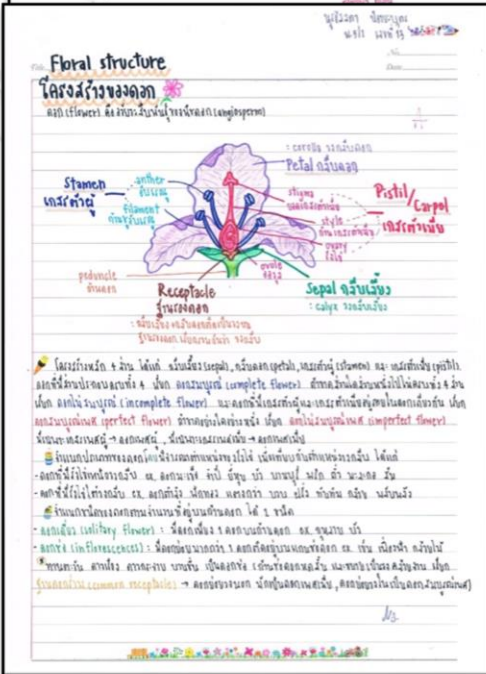 Floral structure
โครงสร้างของดอก
ดอก (flower) คือ อวัยวะสืบพันธุ์ของพืชดอก (angiosperm)
: corolla วงกลีบดอก
Petal กลีบดอก
Stamen
เกสรตัวผู้
anther
อับเรณู
filament
ก้านชูอับเรณู
stigma
ยอดเกสรตัวเมีย
style
ก้านเกสรตัวเมีย
ovary
รังไข่
Pistil/Carpel
เกสรตัวเมีย
ovule
ออวุล
peduncle
ก้านดอก
Receptacle
ฐานรองดอก
Sepal กลีบเลี้ยง
: calyx วงกลีบเลี้ยง
โครงสร้างหลัก 4 ส่วน ได้แก่ กลีบเลี้ยง (sepal), กลีบดอก (petal), เกสรตัวผู้ (stamen) และ เกสรตัวเมีย (pistil),
ดอกที่มีส่วนประกอบครบทั้ง 4 เรียก ดอกสมบูรณ์ (complete flower) ถ้าขาดส่วนใดส่วนหนึ่งไปไม่ครบทั้ง 4 ส่วน
เรียก ดอกไม่สมบูรณ์ (incomplete flower) และดอกที่มีเกสรตัวผู้และเกสรตัวเมียอยู่ภายในดอกเดียวกัน เรียก
ดอกสมบูรณ์เพศ (perfect flower) ถ้าขาดอย่างใดอย่างหนึ่ง เรียก ดอกไม่สมบูรณ์เพศ (imperfect flower)
มีเฉพาะเกสรเพศผู้ → ดอกเพศผู้, มีเฉพาะเกสรเพศเมีย → ดอกเพศเมีย
จำแนกประเภทของดอกโดยพิจารณาตำแหน่งของรังไข่ เมื่อเทียบกับตำแหน่งวงกลีบ ได้แก่
- ดอกที่มีรังไข่เหนือวงกลีบ ex. ดอกมะเขือ จำปี ยี่หุบ บัว บานบุรี พริก ถั่ว มะละกอ ส้ม
- ดอกที่มีรังไข่ใต้วงกลีบ ex. ดอกฟักทอง แตงกวา บวบ ฝรั่ง ทับทิม กล้วย พลับพลึง
จำแนกชนิดของดอกตามจำนวนที่อยู่บนก้านดอก ได้ 2 ชนิด
- ดอกเดี่ยว (solitary flower) : มีดอกเพียง 1 ดอกบนก้านดอก ex. กุหลาบ บัว
- ดอกช่อ (inflorescences) : มีดอกย่อยมากกว่า 1 ดอก ex. เข็ม กล้วยไม้
ทานตะวัน ดาวเรือง ดาวกระจาย บานชื่น เป็นดอกช่อ
ฐานดอกร่วม (common receptacle) →